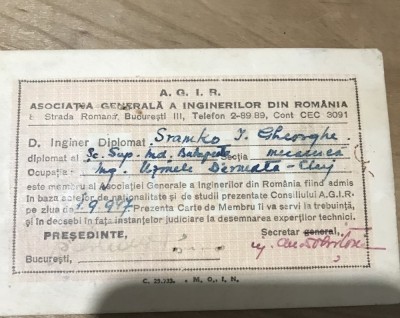 A. G. I. R.
ASOCIAȚIA GENERALĂ A INGINERILOR DIN ROMÂNIA
Strada Romană, București III, Telefon 2-89.89, Cont CEC 3091
D. Inginer Diplomat Sramko I. Gheorghe
diplomat al Șc. Sup. Ind. Budapesta Secția mecanică
Ocupația: ing. Uzinele Dermata-Cluj
este membru al Asociației Generale a Inginerilor din România fiind admis
în baza actelor de naționalitate și de studii prezentate Consiliului A.G.I.R.
pe ziua de Prezenta Carte de Membru îi va servi la trebuință,
și în deosebi în fața instanțelor judiciare la desemnarea experților technici.
PREȘEDINTE, Secretar general,
București,
M. O. I. N.